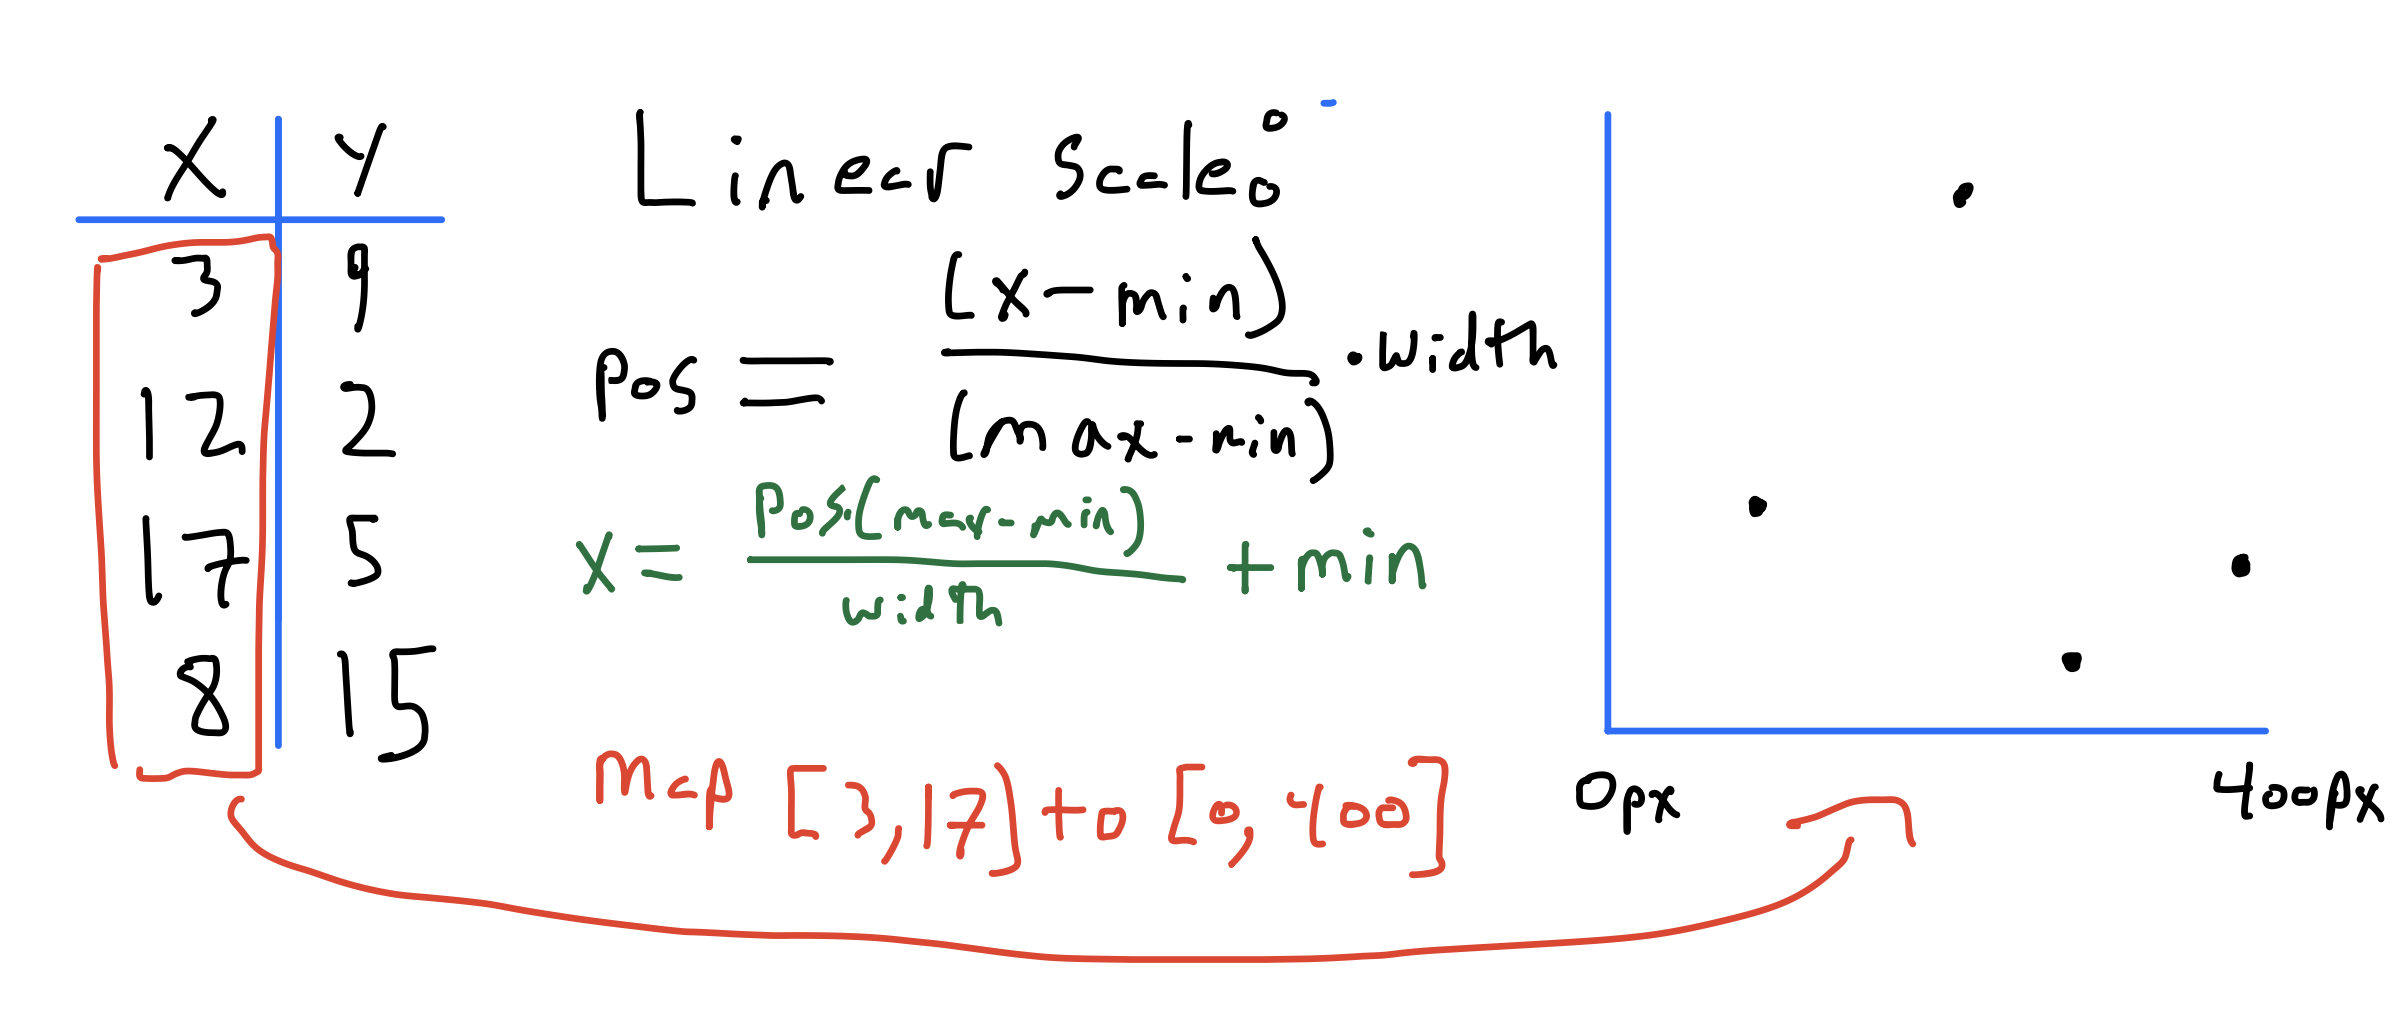 X Y
3 9
12 2
17 5
8 15
Linear Scale:
pos = (x-min) / (max-min) · width
x = pos·(max-min) / width + min
Map [3,17] to [0,400]
0px 400px